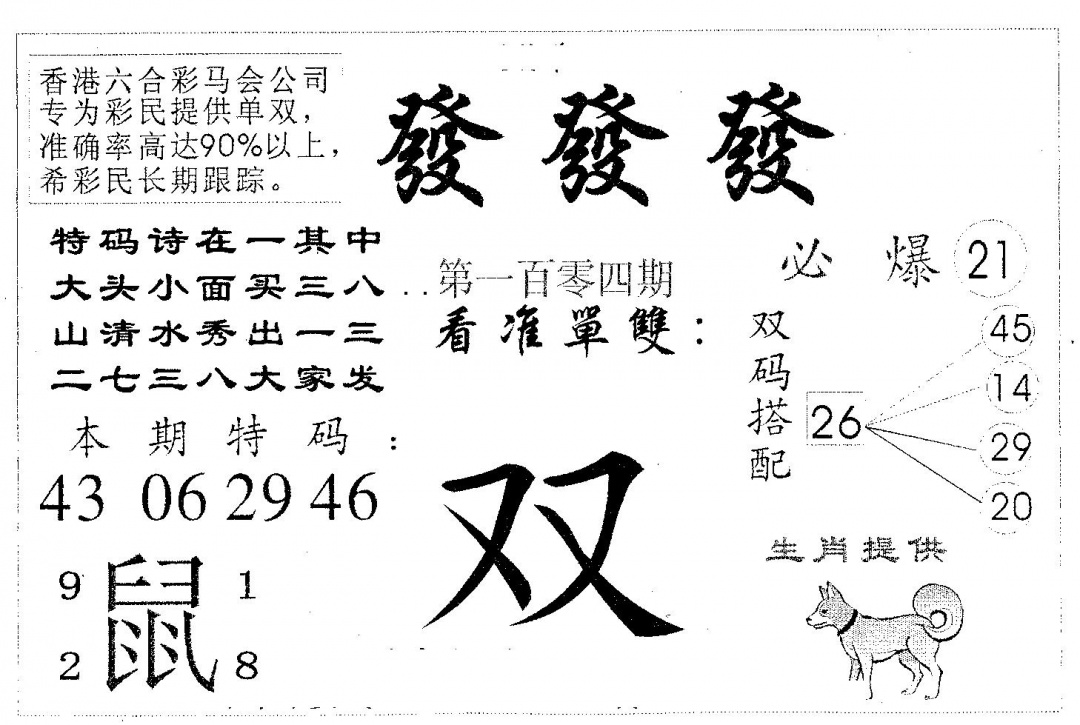 香港六合彩马会公司
专为彩民提供单双，
准确率高达90%以上，
希彩民长期跟踪。
發 發 發
特码诗在一其中
大头小面买三八
山清水秀出一三
二七三八大家发
第一百零四期
看准單雙：
双
必 爆 21
双码搭配
26
45
14
29
20
本期特码：
43 06 29 46
9 鼠 1
2 8
生肖提供